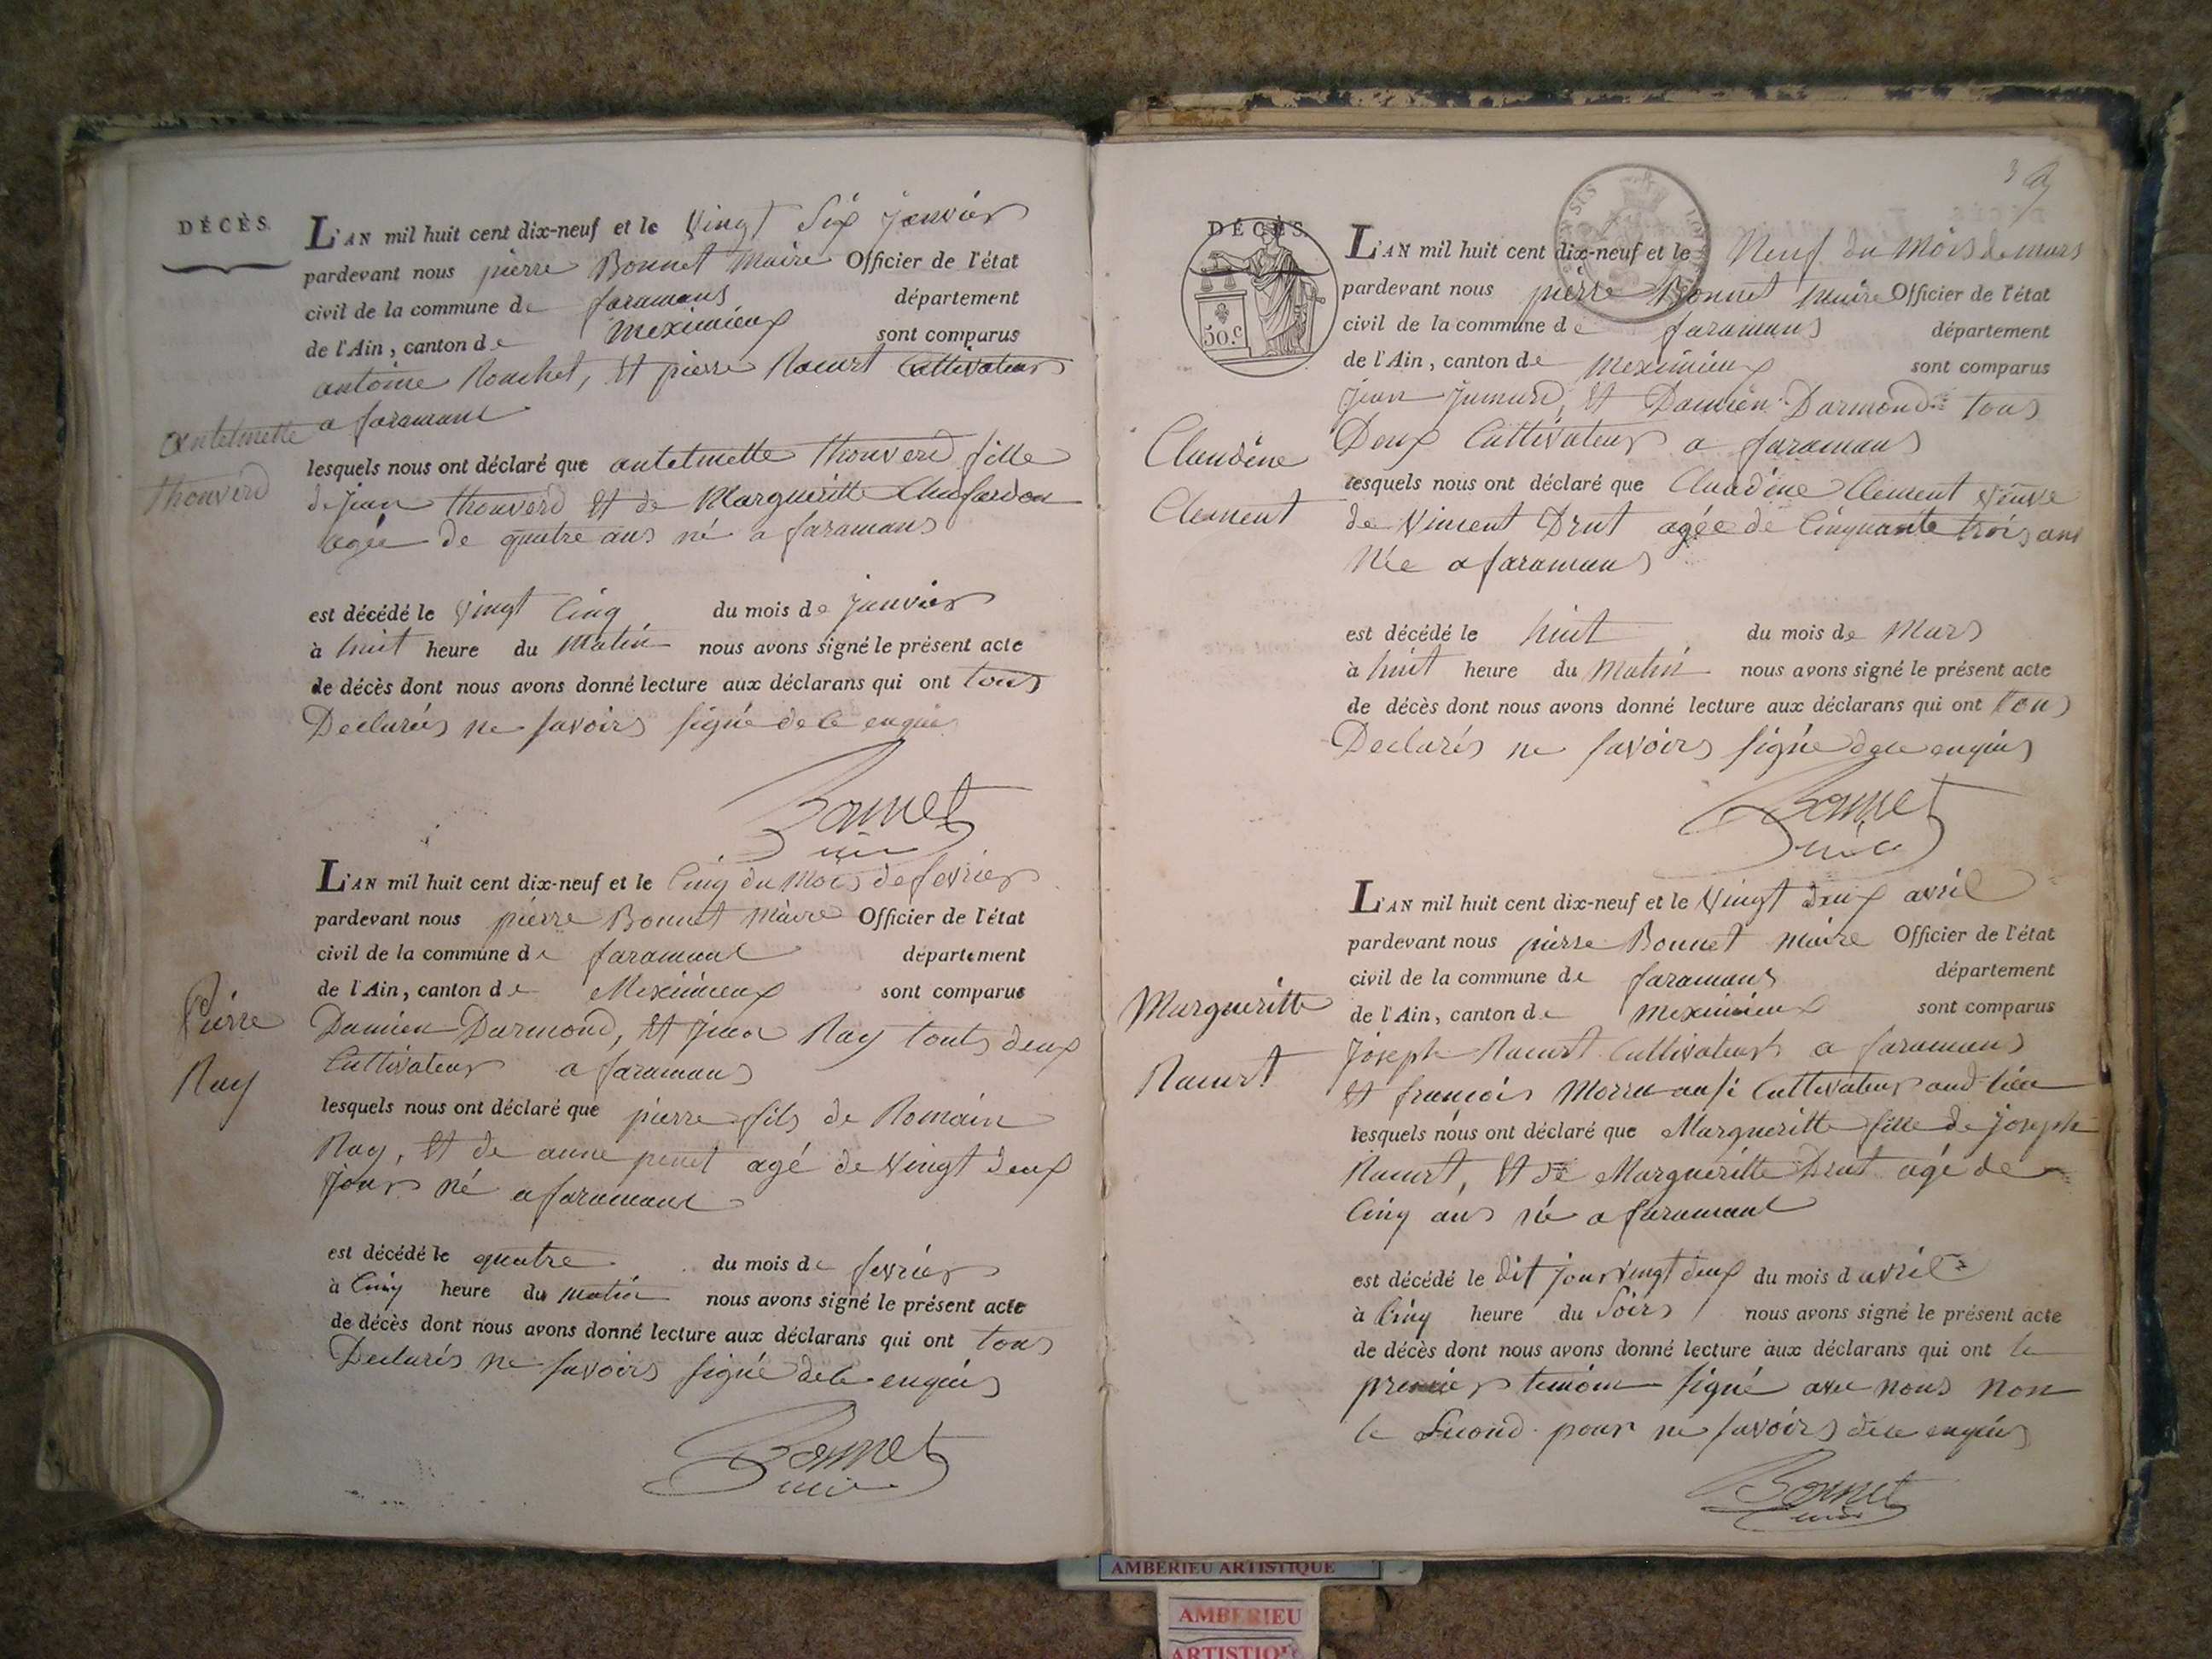 DÉCÈS.
L'AN mil huit cent dix-neuf et le Vingt Six janvier
pardevant nous pierre Bonnet maire Officier de l'état
civil de la commune de faramans département
de l'Ain, canton de Meximieux sont comparus
antoine Rouchet, et pierre Racurt Cultivateurs
a faramans
antelmette
thouverd
lesquels nous ont déclaré que antelmette thouverd fille
de jean thouverd et de Margueritte
agée de quatre ans né a faramans
est décédé le vingt Cinq du mois de janvier
à huit heure du Matin nous avons signé le présent acte
de décès dont nous avons donné lecture aux déclarans qui ont tous
Declarés ne savoirs signé de ce enquis
Bonnet
maire
L'AN mil huit cent dix-neuf et le Cinq du Mois de fevrier
pardevant nous pierre Bonnet Maire Officier de l'état
civil de la commune de faramans département
de l'Ain, canton de Meximieux sont comparus
Pierre
Ray
Damien Darmond, et jean Ray touts deux
Cultivateurs a faramans
lesquels nous ont déclaré que pierre fils de Romain
Ray, et de anne penet agé de Vingt deux
jours né a faramans
est décédé le quatre du mois de fevrier
à Cinq heure du matin nous avons signé le présent acte
de décès dont nous avons donné lecture aux déclarans qui ont tous
Declarés ne savoirs signé de ce enquis
Bonnet
maire
3
DÉCÈS.
50.c
L'AN mil huit cent dix-neuf et le Neuf du Mois de mars
pardevant nous pierre Bonnet maire Officier de l'état
civil de la commune de faramans département
de l'Ain, canton de Meximieux sont comparus
jean Jumard, et Damien Darmond tous
Deux Cultivateurs a faramans
Claudine
Clement
lesquels nous ont déclaré que Claudine Clement veuve
de Vincent Drut agée de Cinquante trois ans
Née a faramans
est décédé le huit du mois de Mars
à huit heure du Matin nous avons signé le présent acte
de décès dont nous avons donné lecture aux déclarans qui ont tous
Declarés ne savoirs signé de ce enquis
Bonnet
maire
L'AN mil huit cent dix-neuf et le Vingt deux avril
pardevant nous pierre Bonnet maire Officier de l'état
civil de la commune de faramans département
de l'Ain, canton de Meximieux sont comparus
Margueritte
Racurt
joseph Racurt Cultivateur a faramans
et françois Morru ausi Cultivateur aud lieu
lesquels nous ont déclaré que Margueritte fille de joseph
Racurt, et de Margueritte Drut agé de
Cinq ans né a faramans
est décédé le dit jour vingt deux du mois d avril
à Cinq heure du Soirs nous avons signé le présent acte
de décès dont nous avons donné lecture aux déclarans qui ont le
premier temoin signé avec nous non
le Second pour ne savoirs de ce enquis
Bonnet
maire
AMBERIEU ARTISTIQUE
AMBERIEU
ARTISTIQUE